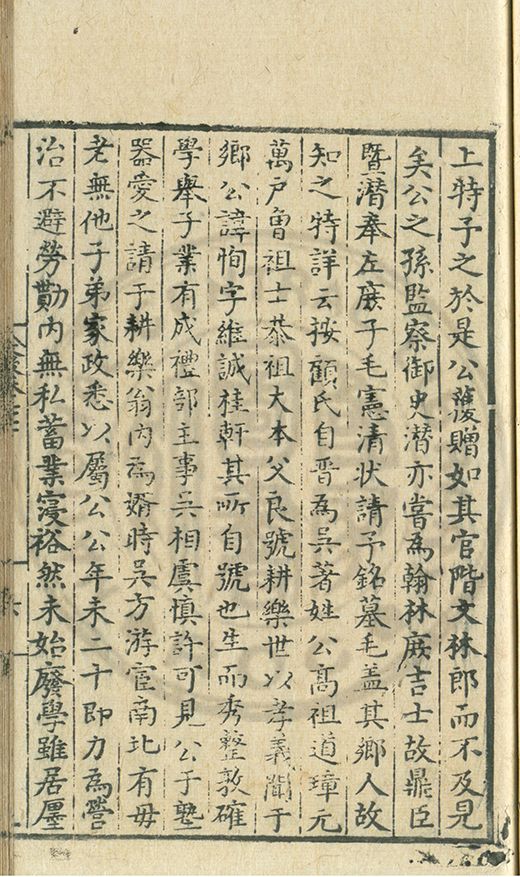 上特予之於是公獲贈如其官階文林郎而不及見
矣公之孫監察御史潛亦嘗為翰林庶吉士故鼎臣
暨潛奉左庶子毛憲清状請予銘墓毛盖其鄉人故
知之特詳云按顧氏自晉為吳著姓公高祖道璋元
萬户曽祖士恭祖大本父良號耕樂世以孝義聞于
鄉公諱恂字維誠桂軒其所自號也生而秀整敦確
學舉子業有成禮部主事吳相虞慎許可見公于塾
器愛之請于耕樂翁内為婿時吳方游宦南北有毋
老無他子弟家政悉以屬公公年未二十即力為營
治不避勞勩内無私蓄業寖裕然未始廢學雖居㕓